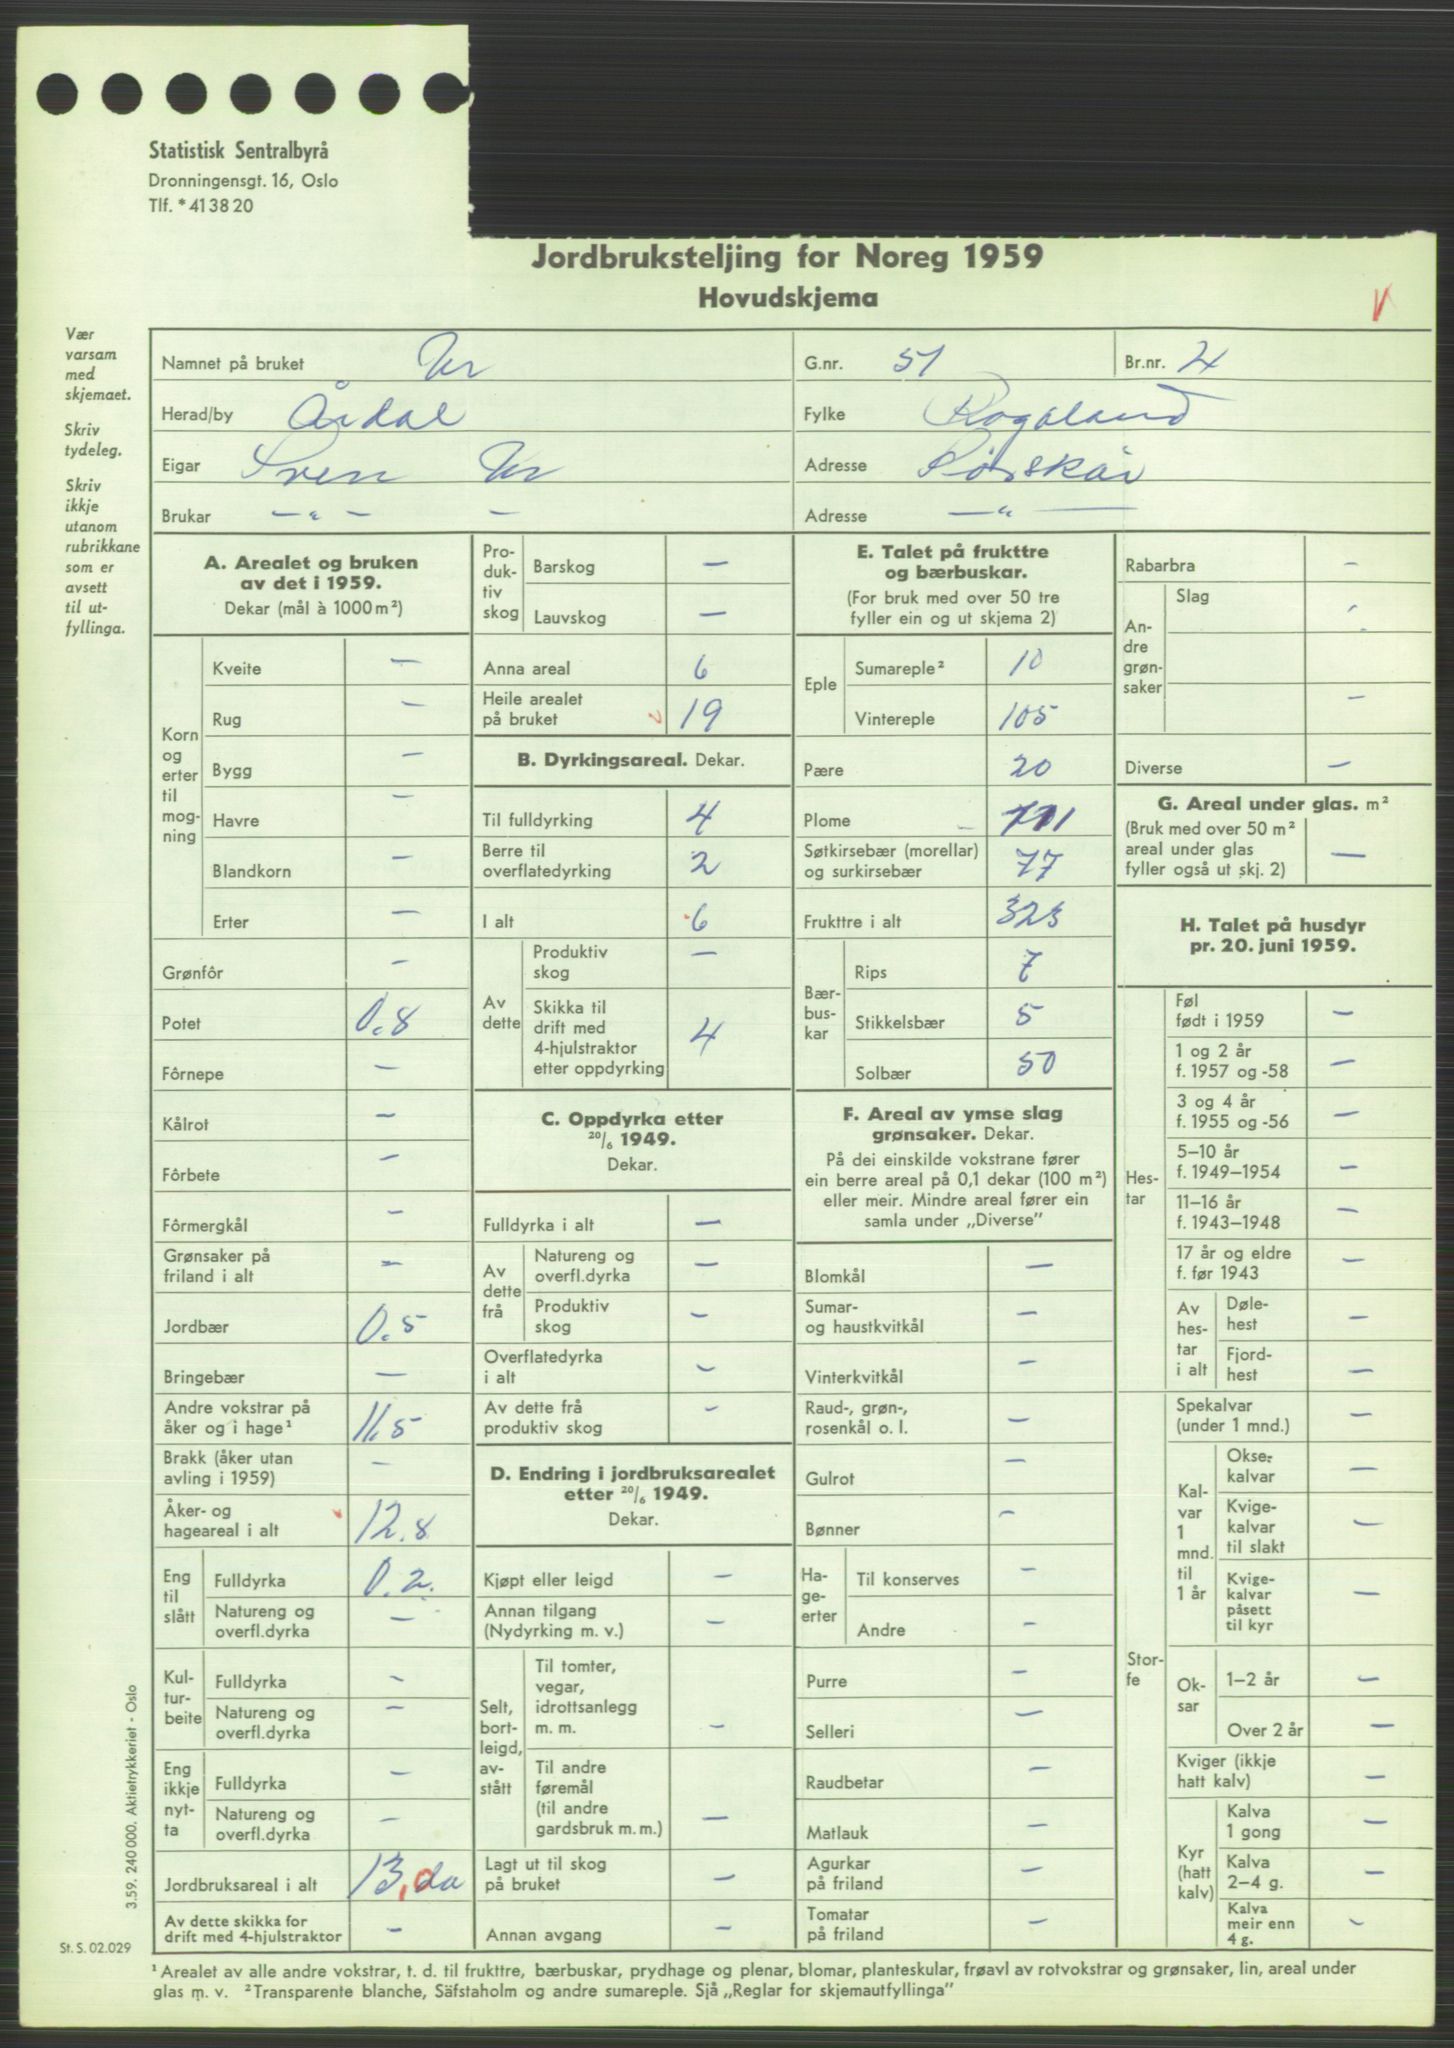 Statistisk Sentralbyrå
Dronningensgt. 16, Oslo
Tlf. *41 38 20
Jordbruksteljing for Noreg 1959
Hovudskjema
V
Vær
varsam
med
skjemaet.
Skriv
tydeleg.
Skriv
ikkje
utanom
rubrikkane
som er
avsett
til ut-
fyllinga.
Namnet på bruket Ur G.nr. 51 Br.nr. 4
Herad/by Årdal Fylke Rogaland
Eigar Sven Ur Adresse Pørskår
Brukar — „ — — Adresse — „ —
A. Arealet og bruken
av det i 1959.
Dekar (mål à 1000 m²)
Korn
og
erter
til
mog-
ning
Kveite —
Rug —
Bygg —
Havre —
Blandkorn —
Erter —
Grønfôr —
Potet 0.8
Fôrnepe —
Kålrot —
Fôrbete —
Fôrmergkål —
Grønsaker på
friland i alt —
Jordbær 0.5
Bringebær —
Andre vokstrar på
åker og i hage¹ 11.5
Brakk (åker utan
avling i 1959) —
Åker- og
hageareal i alt 12.8
Eng
til
slått
Fulldyrka 0.2
Natureng og
overfl.dyrka —
Kul-
tur-
beite
Fulldyrka —
Natureng og
overfl.dyrka —
Eng
ikkje
nyt-
ta
Fulldyrka —
Natureng og
overfl.dyrka —
Jordbruksareal i alt 13,0
Av dette skikka for
drift med 4-hjulstraktor —
Pro-
duk-
tiv
skog
Barskog —
Lauvskog —
Anna areal 6
Heile arealet
på bruket 19
B. Dyrkingsareal. Dekar.
Til fulldyrking 4
Berre til
overflatedyrking 2
I alt 6
Av
dette
Produktiv
skog —
Skikka til
drift med
4-hjulstraktor
etter oppdyrking 4
C. Oppdyrka etter
²⁰/₆ 1949.
Dekar.
Fulldyrka i alt —
Av
dette
frå
Natureng og
overfl.dyrka —
Produktiv
skog —
Overflatedyrka
i alt —
Av dette frå
produktiv skog —
D. Endring i jordbruksarealet
etter ²⁰/₆ 1949.
Dekar.
Kjøpt eller leigd —
Annan tilgang
(Nydyrking m. v.) —
Selt,
bort-
leigd,
av-
stått
Til tomter,
vegar,
idrottsanlegg
m. m. —
Til andre
føremål
(til andre
gardsbruk m. m.) —
Lagt ut til skog
på bruket —
Annan avgang —
E. Talet på frukttre
og bærbuskar.
(For bruk med over 50 tre
fyller ein og ut skjema 2)
Eple
Sumareple² 10
Vintereple 105
Pære 20
Plome 111
Søtkirsebær (morellar)
og surkirsebær 77
Frukttre i alt 323
Bær-
bus-
kar
Rips 7
Stikkelsbær 5
Solbær 50
F. Areal av ymse slag
grønsaker. Dekar.
På dei einskilde vokstrane fører
ein berre areal på 0,1 dekar (100 m²)
eller meir. Mindre areal fører ein
samla under „Diverse”
Blomkål —
Sumar-
og haustkvitkål —
Vinterkvitkål —
Raud-, grøn-,
rosenkål o. l. —
Gulrot —
Bønner —
Ha-
ge-
erter
Til konserves —
Andre —
Purre —
Selleri —
Raudbetar —
Matlauk —
Agurkar
på friland —
Tomatar
på friland —
Rabarbra —
An-
dre
grøn-
saker
Slag
—
Diverse —
G. Areal under glas. m²
(Bruk med over 50 m²
areal under glas
fyller også ut skj. 2) —
H. Talet på husdyr
pr. 20. juni 1959.
Hes-
tar
Føl
født i 1959 —
1 og 2 år
f. 1957 og -58 —
3 og 4 år
f. 1955 og -56 —
5–10 år
f. 1949–1954 —
11–16 år
f. 1943–1948 —
17 år og eldre
f. før 1943 —
Av
hes-
tar
i alt
Døle-
hest —
Fjord-
hest —
Stor-
fe
Spekalvar
(under 1 mnd.) —
Kal-
var
1
mnd.
til
1 år
Okse-
kalvar —
Kvige-
kalvar
til slakt —
Kvige-
kalvar
påsett
til kyr —
Ok-
sar
1–2 år —
Over 2 år —
Kviger (ikkje
hatt kalv) —
Kyr
(hatt
kalv)
Kalva
1 gong —
Kalva
2–4 g. —
Kalva
meir enn
4 g. —
3.59. 240 000. Aktietrykkeriet - Oslo
St. S. 02.029
¹ Arealet av alle andre vokstrar, t. d. til frukttre, bærbuskar, prydhage og plenar, blomar, planteskular, frøavl av rotvokstrar og grønsaker, lin, areal under
glas m. v. ² Transparente blanche, Säfstaholm og andre sumareple. Sjå „Reglar for skjemautfyllinga”